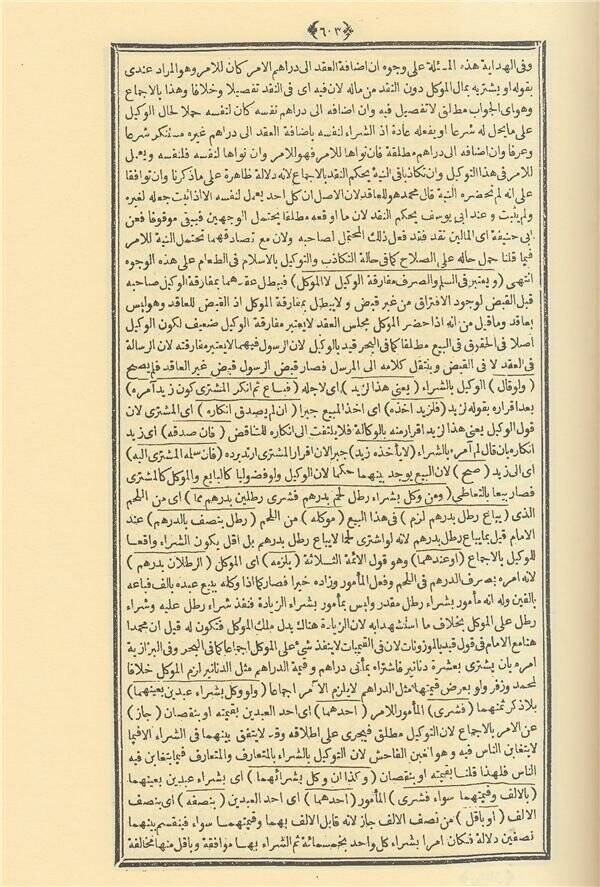 ﴿٦٠٣﴾
وفى الهداية هذه المسئلة على وجوه ان اضافة العقد الى دراهم الامر كان للامر وهو المراد عندى
بقوله او يشتريه بمال الموكل دون النقد من ماله لان فيه اى فى النقد تفصيلا وخلافا وهذا بالاجماع
وهو اى الجواب مطلق لا تفصيل فيه وان اضافه الى دراهم نفسه كان لنفسه حملا لحال الوكيل
على ما يحل له شرعا او يفعله عادة اذ الشراء لنفسه باضافة العقد الى دراهم غيره مستنكر شرعا
وعرفا وان اضافه الى دراهم مطلقة فان نواها للامر فهو للامر وان نواها لنفسه فلنفسه ويعمل
للامر فى هذا التوكيل وان تكاذبا فى النية يحكم النقد بالاجماع لانه دلالة ظاهرة على ما ذكرنا وان توافقا
على انه لم تحضره النية قال محمد هو للعاقد لان الاصل ان كل احد يعمل لنفسه الا اذا ثبت جعله لغيره
ولم يثبت وعند ابى يوسف يحكم النقد لان ما اوقعه مطلقا يحتمل الوجهين فيبقى موقوفا فعن
ابى حنيفة اى المالين نقد فقد فعل ذلك المحتمل لصاحبه ولان مع تصادقهما تحتمل النية للامر
فيما قلنا حمل حاله على الصلاح كما فى حالة التكاذب والتوكيل بالاسلام فى الطعام على هذه الوجوه
انتهى (ويعتبر فى السلم والصرف مفارقة الوكيل لا الموكل) فيبطل عقدهما بمفارقة الوكيل صاحبه
قبل القبض لوجود الافتراق من غير قبض ولا يبطل بمفارقة الموكل اذ القبض للعاقد وهو ليس
بعاقد وما قيل من انه اذا حضر الموكل مجلس العقد لا يعتبر مفارقة الوكيل ضعيف لكون الوكيل
اصلا فى الحقوق فى البيع مطلقا كما فى البحر قيد بالوكيل لان الرسول فيهما لا يعتبر مفارقته لان الرسالة
فى العقد لا فى القبض وينتقل كلامه الى المرسل فصار قبض الرسول قبض غير العاقد فلم يصح
(ولو قال) الوكيل بالشراء (بعنى هذا لزيد) اى لاجله (فباع ثم انكر المشترى كون زيد آمره)
بعد اقراره بقوله لزيد (فلزيد اخذه) اى اخذ المبيع جبرا (ان لم يصدق انكاره) اى المشترى لان
قول الوكيل بعنى هذا لزيد اقرار منه بالوكالة فلا يلتفت الى انكاره للتناقض (فان صدقه) اى زيد
انكاره بان قال لم آمره بالشراء (لا يأخذه زيد) جبرا لان اقرار المشترى ارتد برده (فان سلمه المشترى اليه)
اى الى زيد (صح) لان البيع يوجد بينهما حكما لان الوكيل ولو فضوليا كالبايع والموكل كالمشترى
فصار بيعا بالتعاطى (ومن وكل بشراء رطل لحم بدرهم فشرى رطلين بدرهم مما) اى من اللحم
الذى (يباع رطل بدرهم لزم) فى هذا البيع (موكله) من اللحم (رطل بنصف بالدرهم) عند
الامام قيل بما يباع رطل بدرهم لانه لو اشترى لحما لا يباع رطل بدرهم بل اقل يكون الشراء واقعا
للوكيل بالاجماع (وعندهما) وهو قول الائمة الثلاثة (يلزمه) اى الموكل (الرطلان بدرهم)
لانه امره بصرف الدرهم فى اللحم وفعل المأمور وزاده خيرا فصار كما اذا وكله ببيع عبده بالف فباعه
بالفين وله انه مأمور بشراء رطل مقدر وليس بمأمور بشراء الزيادة فنفذ شراء رطل عليه وشراء
رطل على الموكل بخلاف ما استشهدا به لان الزيادة هناك بدل ملك الموكل فتكون له قيل ان محمدا
هنا مع الامام فى قول قيد بالموزونات لان فى القيميات لا ينفذ شئ على الموكل اجماعا كما فى البحر وفى البزازية
امره بان يشترى بعشرة دنانير فاشتراه بمأتى دراهم وقيمة الدراهم مثل الدنانير لزم الموكل خلافا
لمحمد وزفر ولو بعرض قيمتها مثل الدراهم لا يلزم الآمر اجماعا (ولو وكل بشراء عبدين بعينهما)
بلا ذكر ثمنهما (فشرى) المأمور للامر (احدهما) اى احد العبدين بقيمته او بنقصان (جاز)
عن الامر بالاجماع لان التوكيل مطلق فيجرى على اطلاقه وقد لا يتفق بينهما فى الشراء الا فيما
لا يتغابن الناس فيه وهو الغبن الفاحش لان التوكيل بالشراء بالمتعارف والمتعارف فيما يتغابن فيه
الناس فلهذا قلنا بقيمته او بنقصان (وكذا ان وكل بشرائهما) اى بشراء عبدين بعينهما
(بالالف وقيمتهما سواء فشرى) المأمور (احدهما) اى احد العبدين (بنصفه) اى بنصف
الالف (او باقل) من نصف الالف جاز لانه قابل الالف بهما وقيمتهما سواء فينقسم بينهما
نصفين دلالة فكان امرا بشراء كل واحد بخمسمائة ثم الشراء بهما موافقة وباقل منها مخالفة